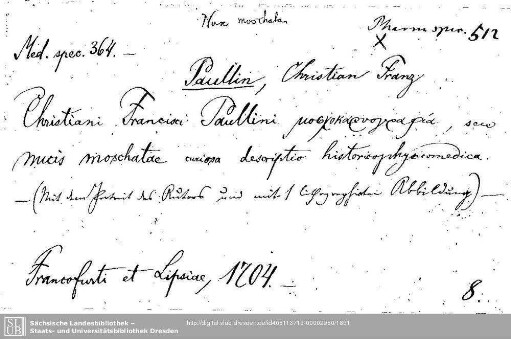 Nux moschata
Pharm spec. 512
X
Med. spec. 364. —
Paullin, Christian Franz
Christiani Francisci Paullini μοσχοκαρυογραφία, seu
nucis moschatae curiosa descriptio historicophysicomedica.
— (Mit dem Portrait des Autors und mit 1 Abbildung) —
Francofurti et Lipsiae, 1704. —
8.
SLUB
Sächsische Landesbibliothek –
Staats- und Universitätsbibliothek Dresden